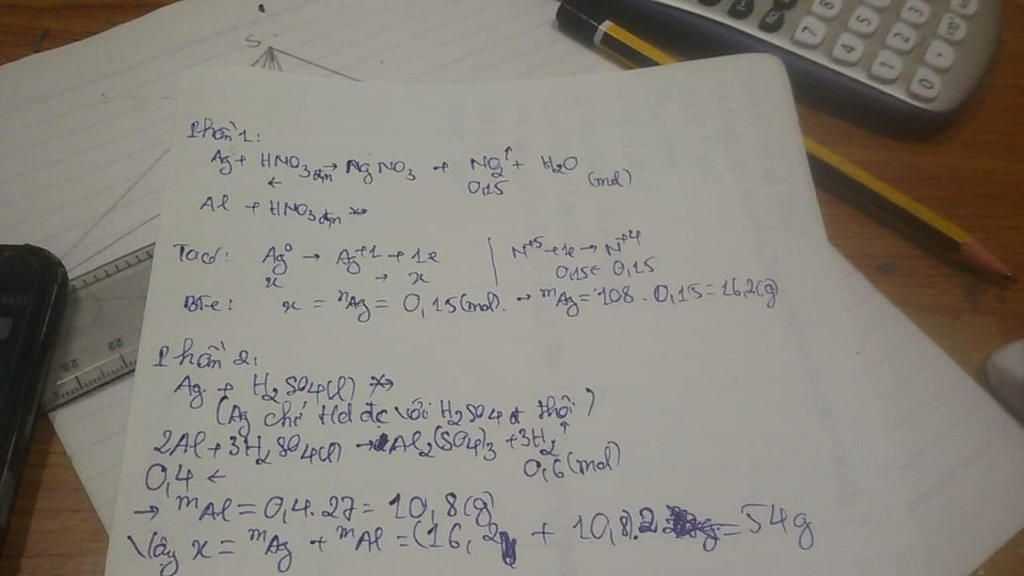 S
Phần 1:
Ag + HNO3 đặc → AgNO3 + NO2↑ + H2O
← 0,15 (mol)
Al + HNO3 đặc ↛
Ta có: Ag⁰ → Ag⁺¹ + 1e | N⁺⁵ + 1e → N⁺⁴
x → x 0,15 ← 0,15
BTe: x = nAg = 0,15(mol). → mAg = 108 . 0,15 = 16,2(g)
Phần 2:
Ag + H2SO4(l) ↛
(Ag chỉ td đc với H2SO4 đ thôi)
2Al + 3H2SO4(l) → Al2(SO4)3 + 3H2↑
0,4 ← 0,6(mol)
→ mAl = 0,4.27 = 10,8(g)
Vậy x = mAg + mAl = (16,2 + 10,8).2 = 54g
7 8
4 5
1 2 3
0 . x10ˣ
22 23